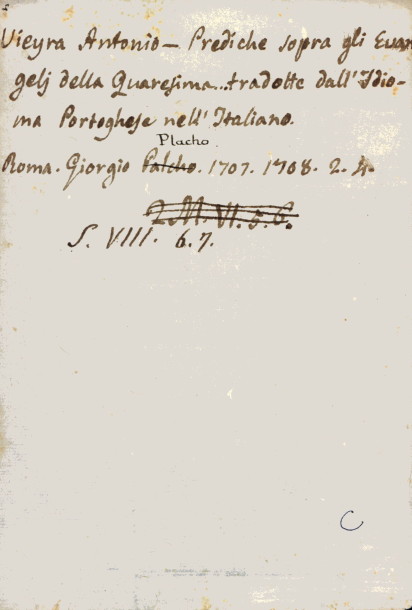 Vieyra Antonio — Prediche sopra gli Evan
gelj della Quaresima...tradotte dall' Idio-
ma Portoghese nell' Italiano.
Placho.
Roma. Giorgio Palcho. 1707. 1708. 2. 4.
2. M. VI. 5. 6.
S. VIII. 6. 7.
C